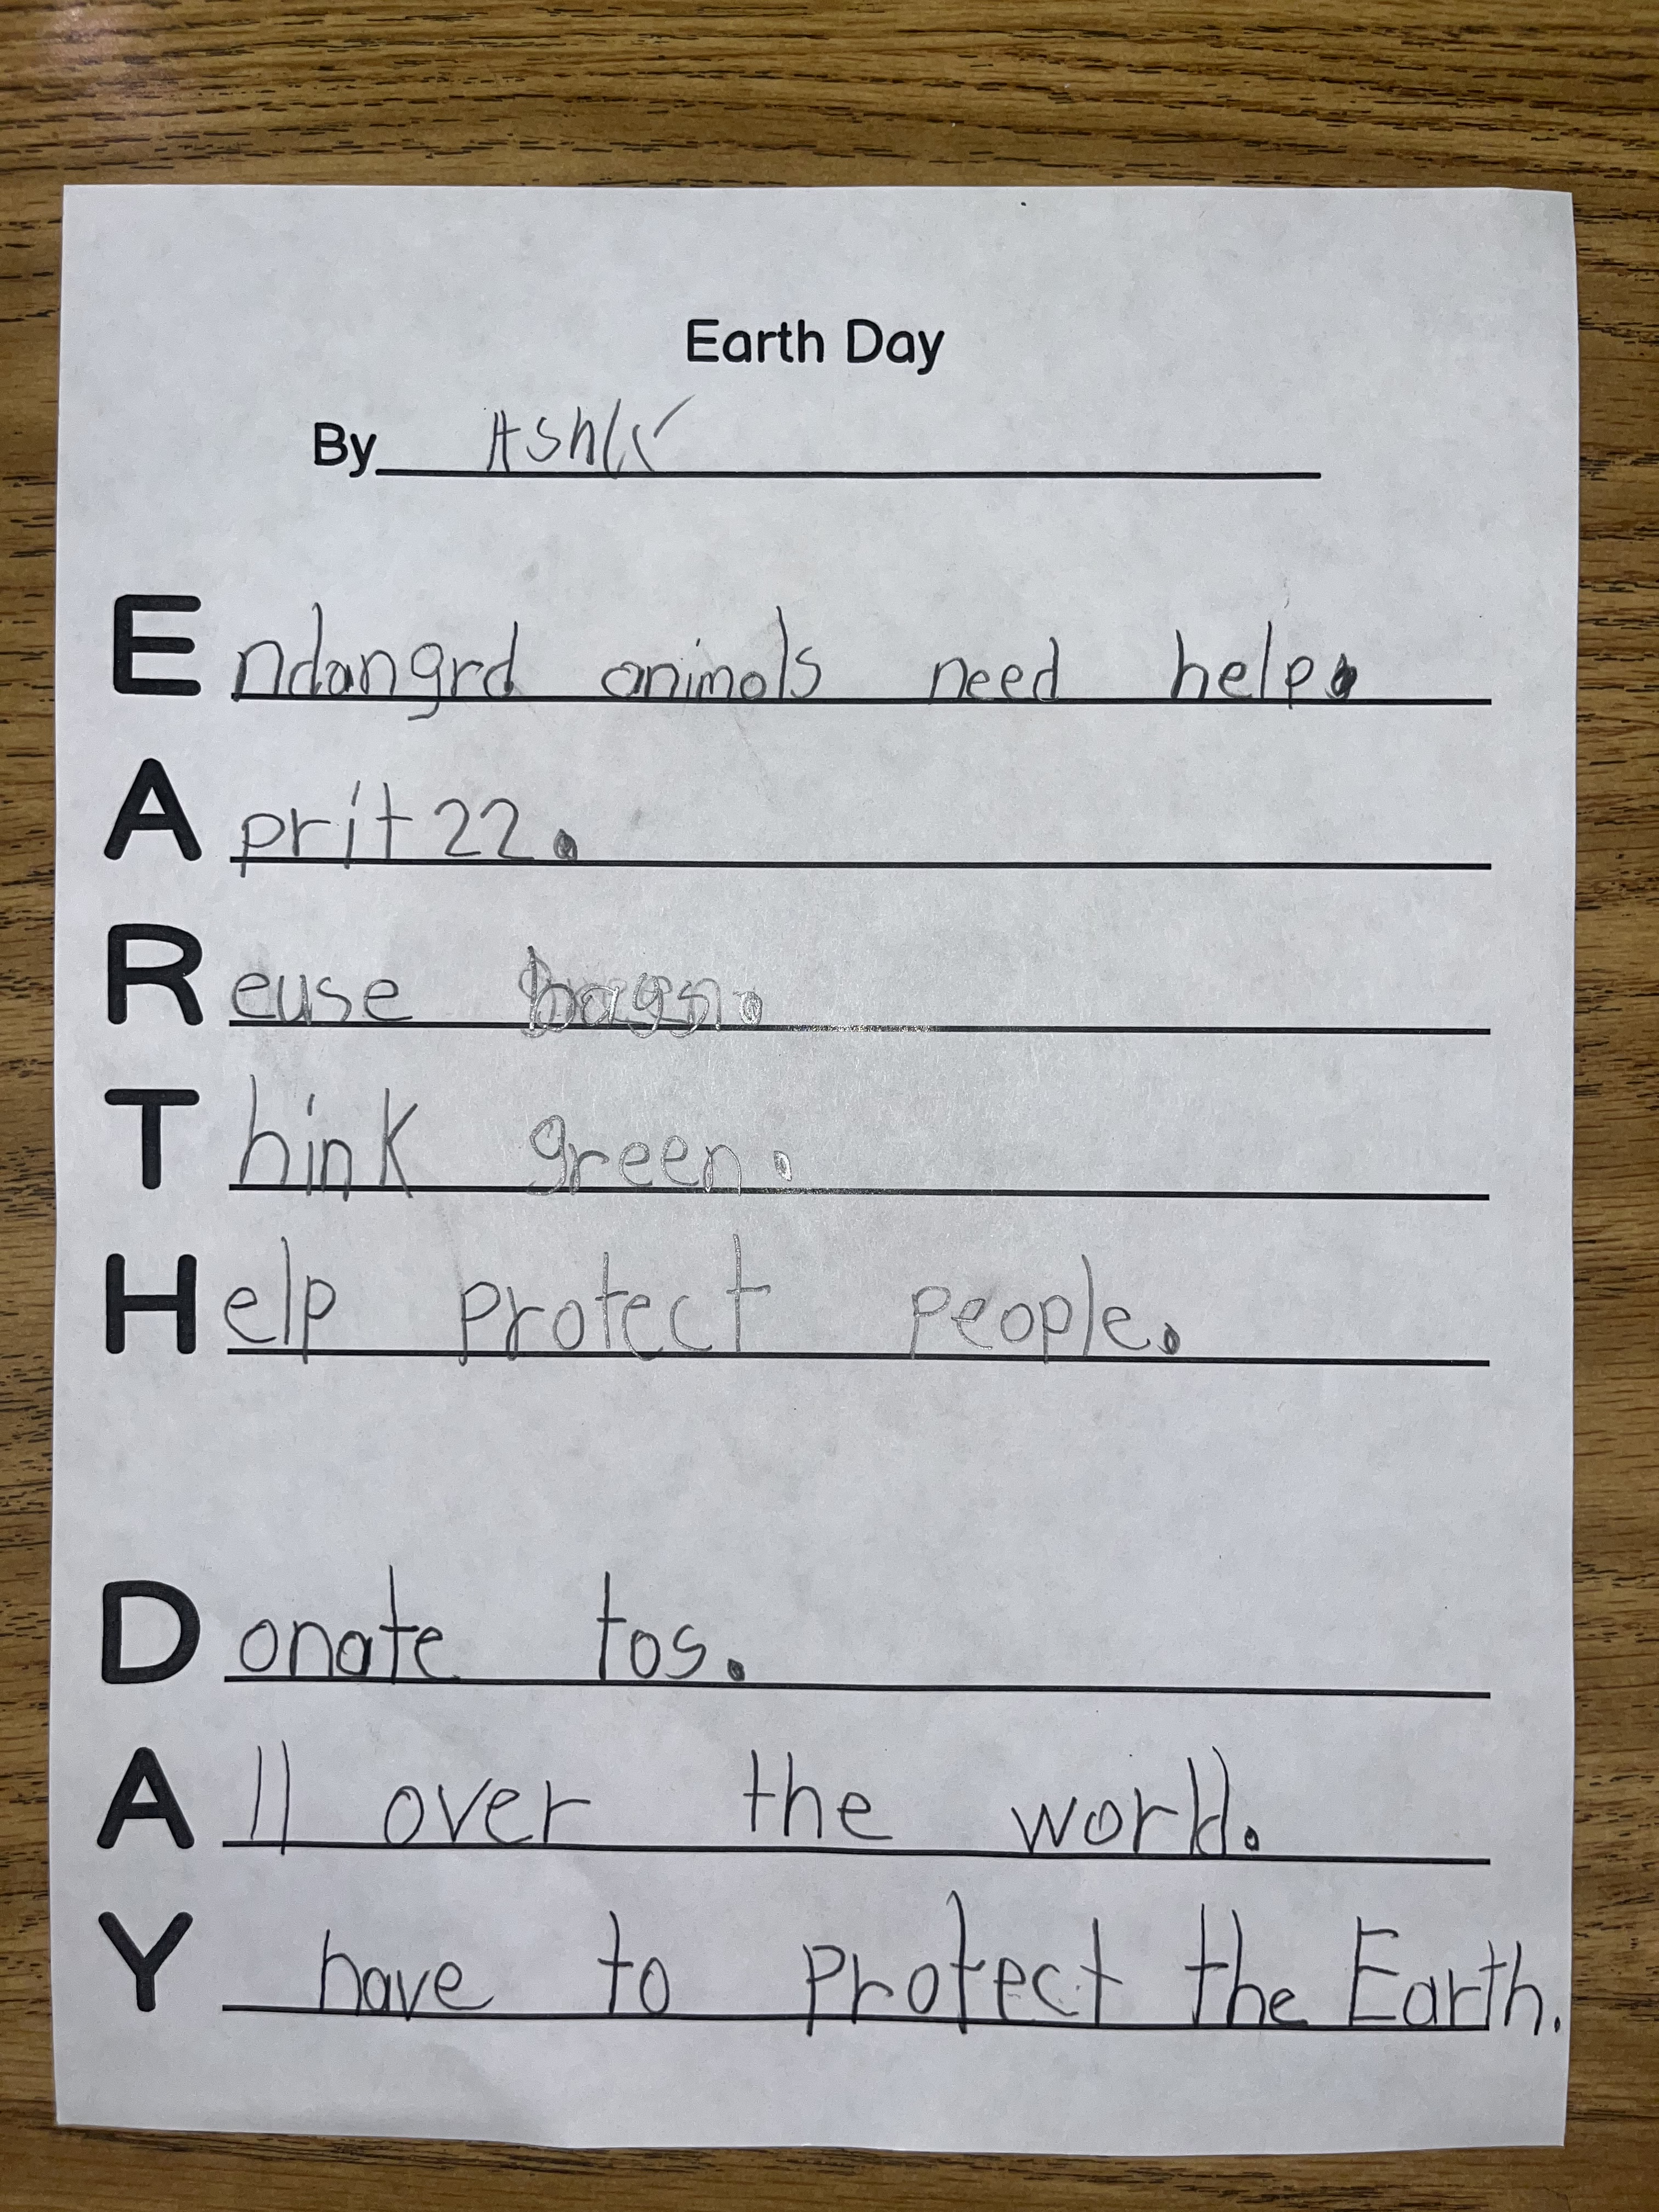 Earth Day
By Ashk
Endangrd animals need help.
Aprit 22.
Reuse bags.
Think green.
Help protect people.
Donate tos.
All over the world.
Y have to protect the Earth.